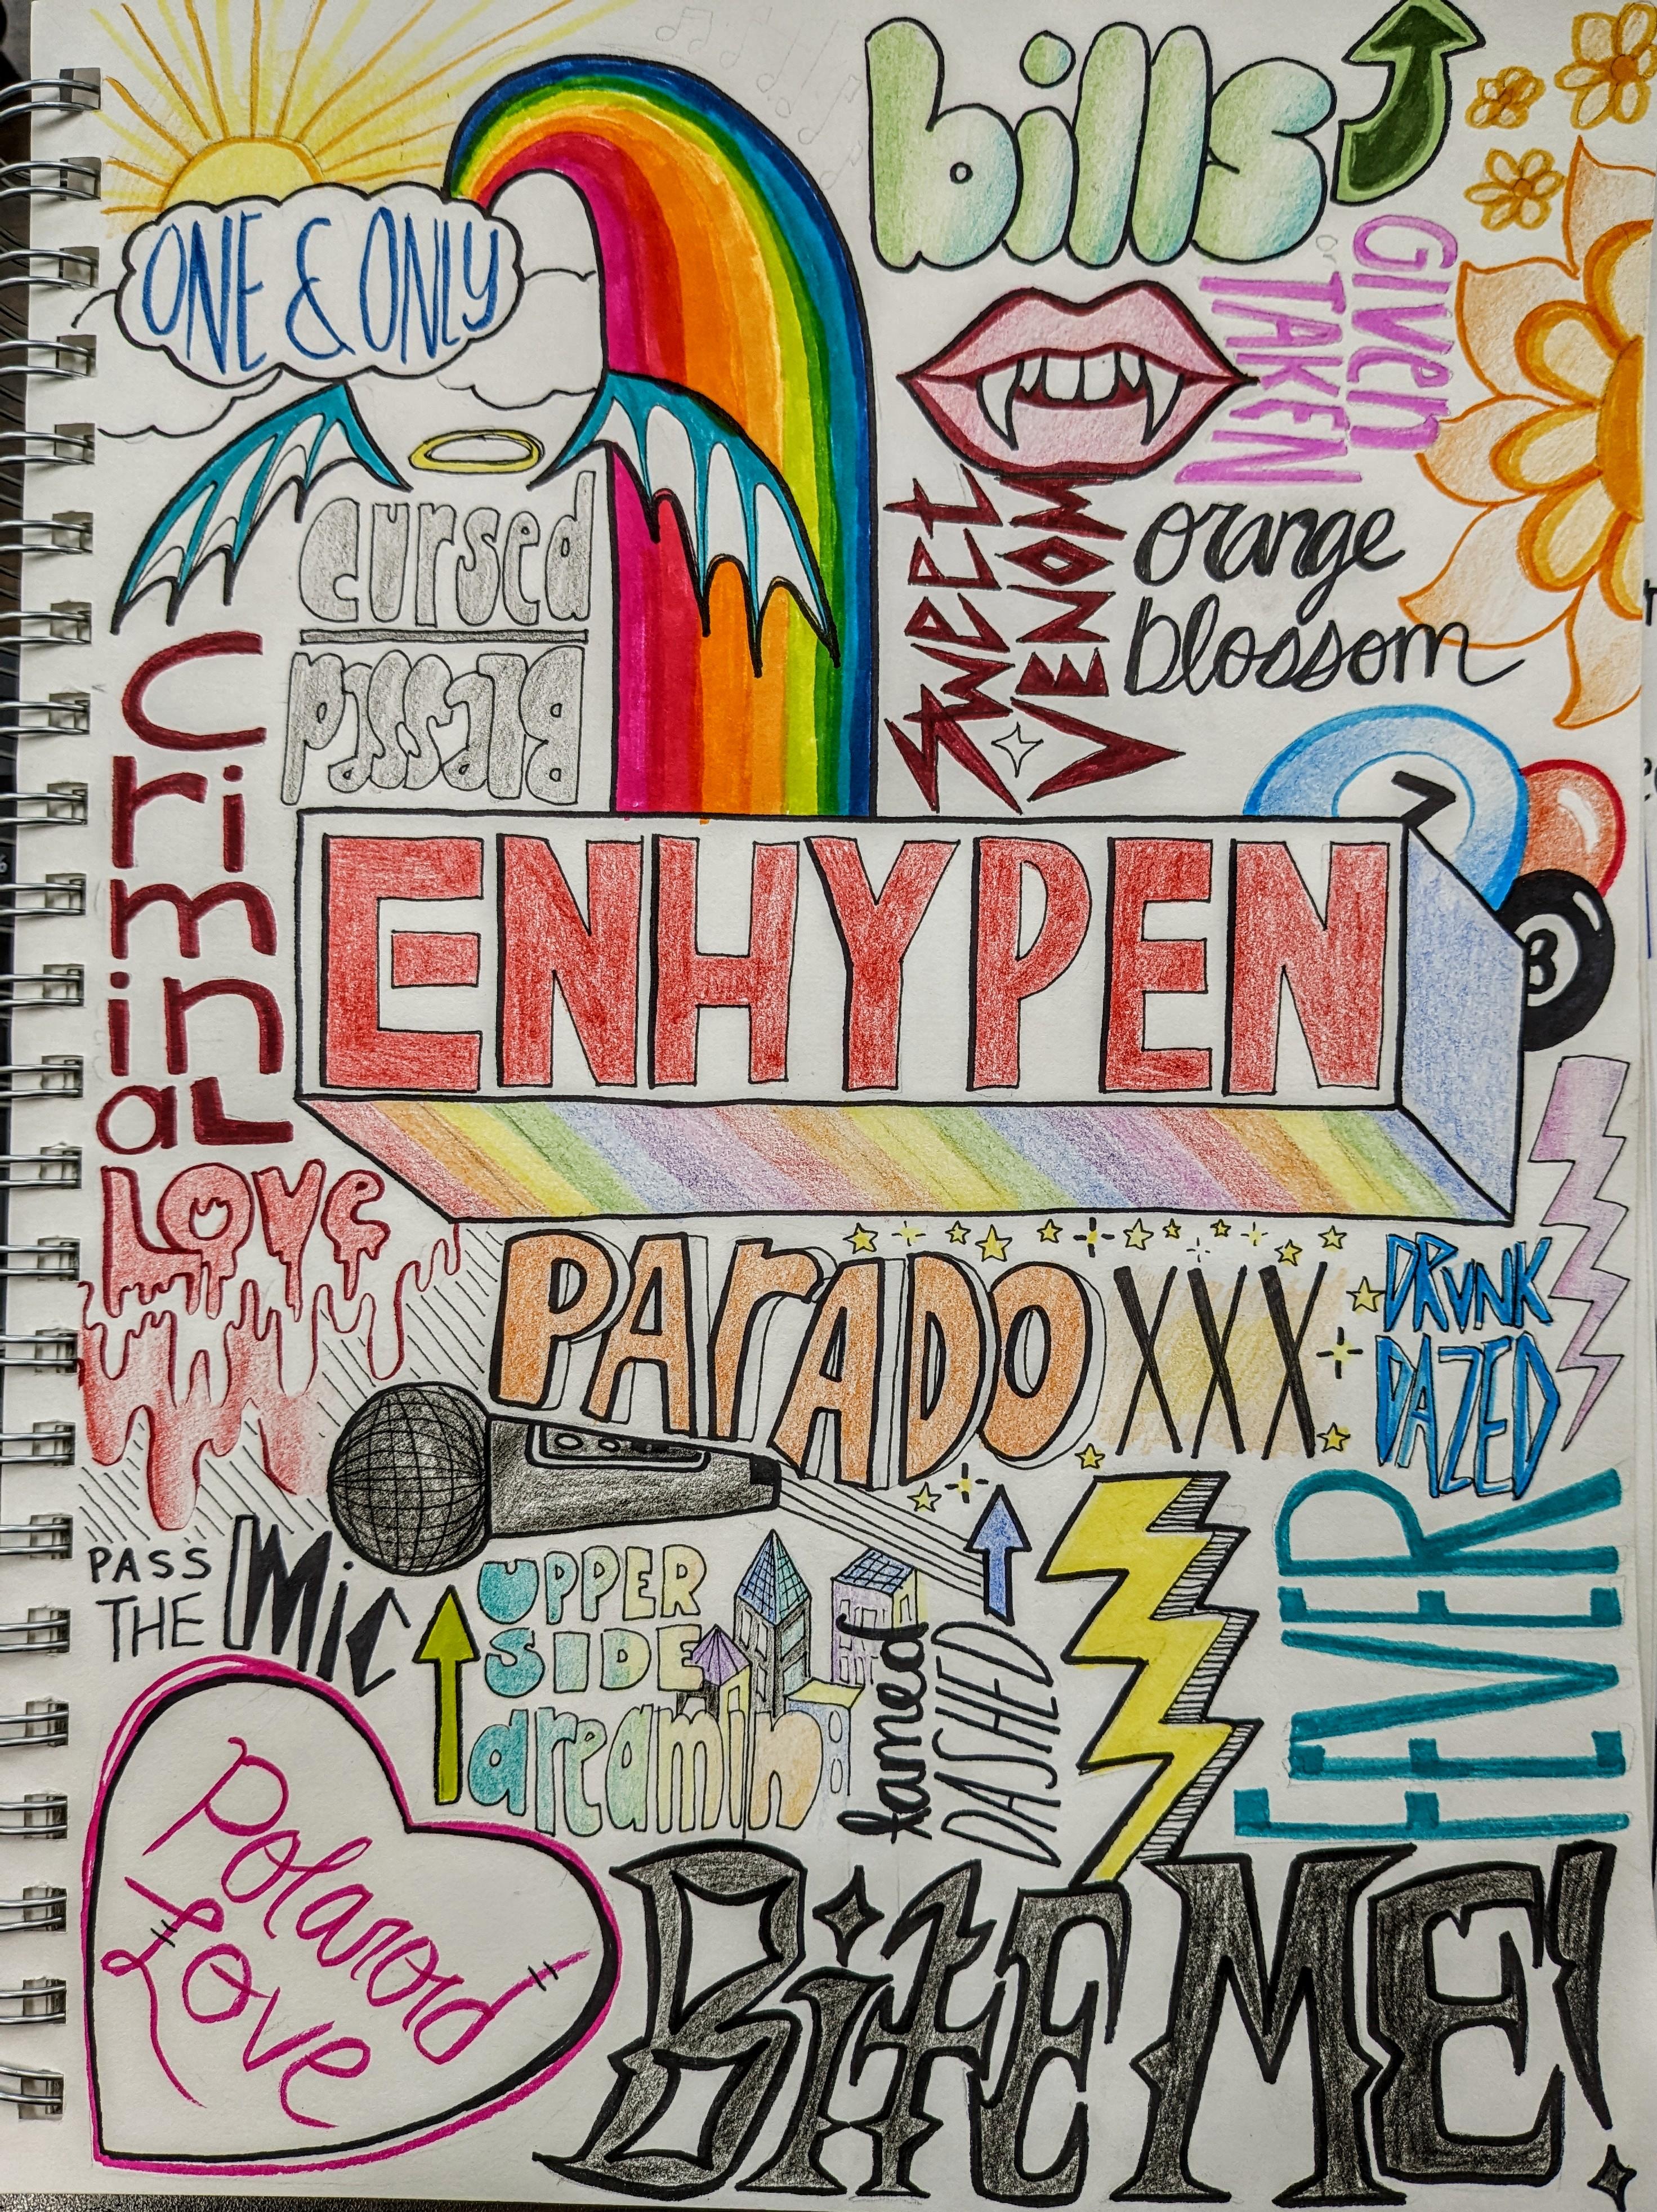 bills
ONE & ONLY
GIVen
TAKEN
cursed
Blessed
SWEET
VENOM
orange
blossom
7
8
Criminal
LOVe
ENHYPEN
PArADO XXX
DRUNK
DAZED
PASS
THE Mic
UPPER
SIDE
dreamin
tamed
DASHED
FEVER
Polaroid
Love
BitE ME!